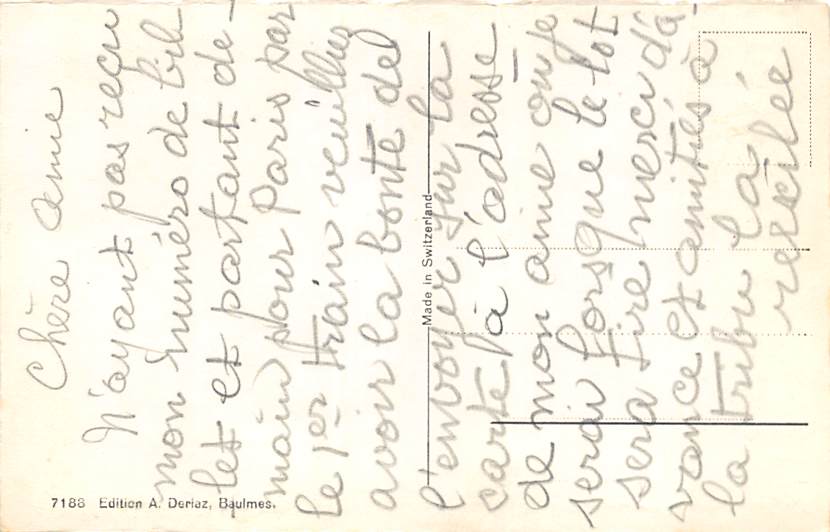 Chère amie
N'ayant pas reçu
mon numéro de bil
let et partant de-
main pour Paris par
le 1er train veuillez
avoir la bonté de
l'envoyer sur la
carte à l'adresse
de mon amie ou je
serai lorsque le lot
sera tiré merci d'a-
vance et amitiés à
la tribu La
resculée
7188 Edition A. Deriaz, Baulmes.
Made in Switzerland